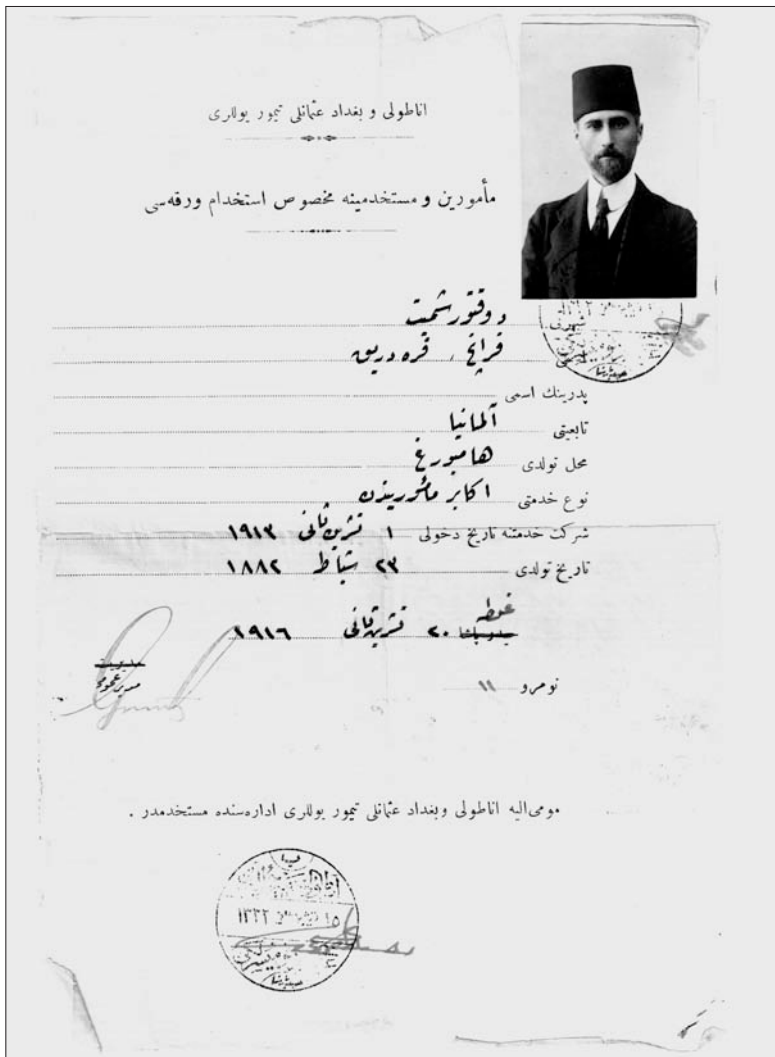 اناطولی و بغداد عثمانلی تیمور یوللری
مأمورین و مستخدمینه مخصوص استخدام ورقه‌سی
شهرتی دوقتور شمت
فرانچ، فره دریق
پدرینك اسمی
تابعیتی آلمانیا
محل تولدی هامبورغ
نوع خدمتی اكابر مأموریندن
شركت خدمتنه تاریخ دخولی ١ تشرین ثانی ١٩١٣
تاریخ تولدی ٢٣ شباط ١٨٨٢
غلطه
حیدرپاشا ٢٠ تشرین ثانی ١٩١٦
مدیر عمومی
نومرو ١١
مومی‌الیه اناطولی وبغداد عثمانلی تیمور یوللری اداره‌سنده مستخدمدر .
١٥ ١٣٣٢